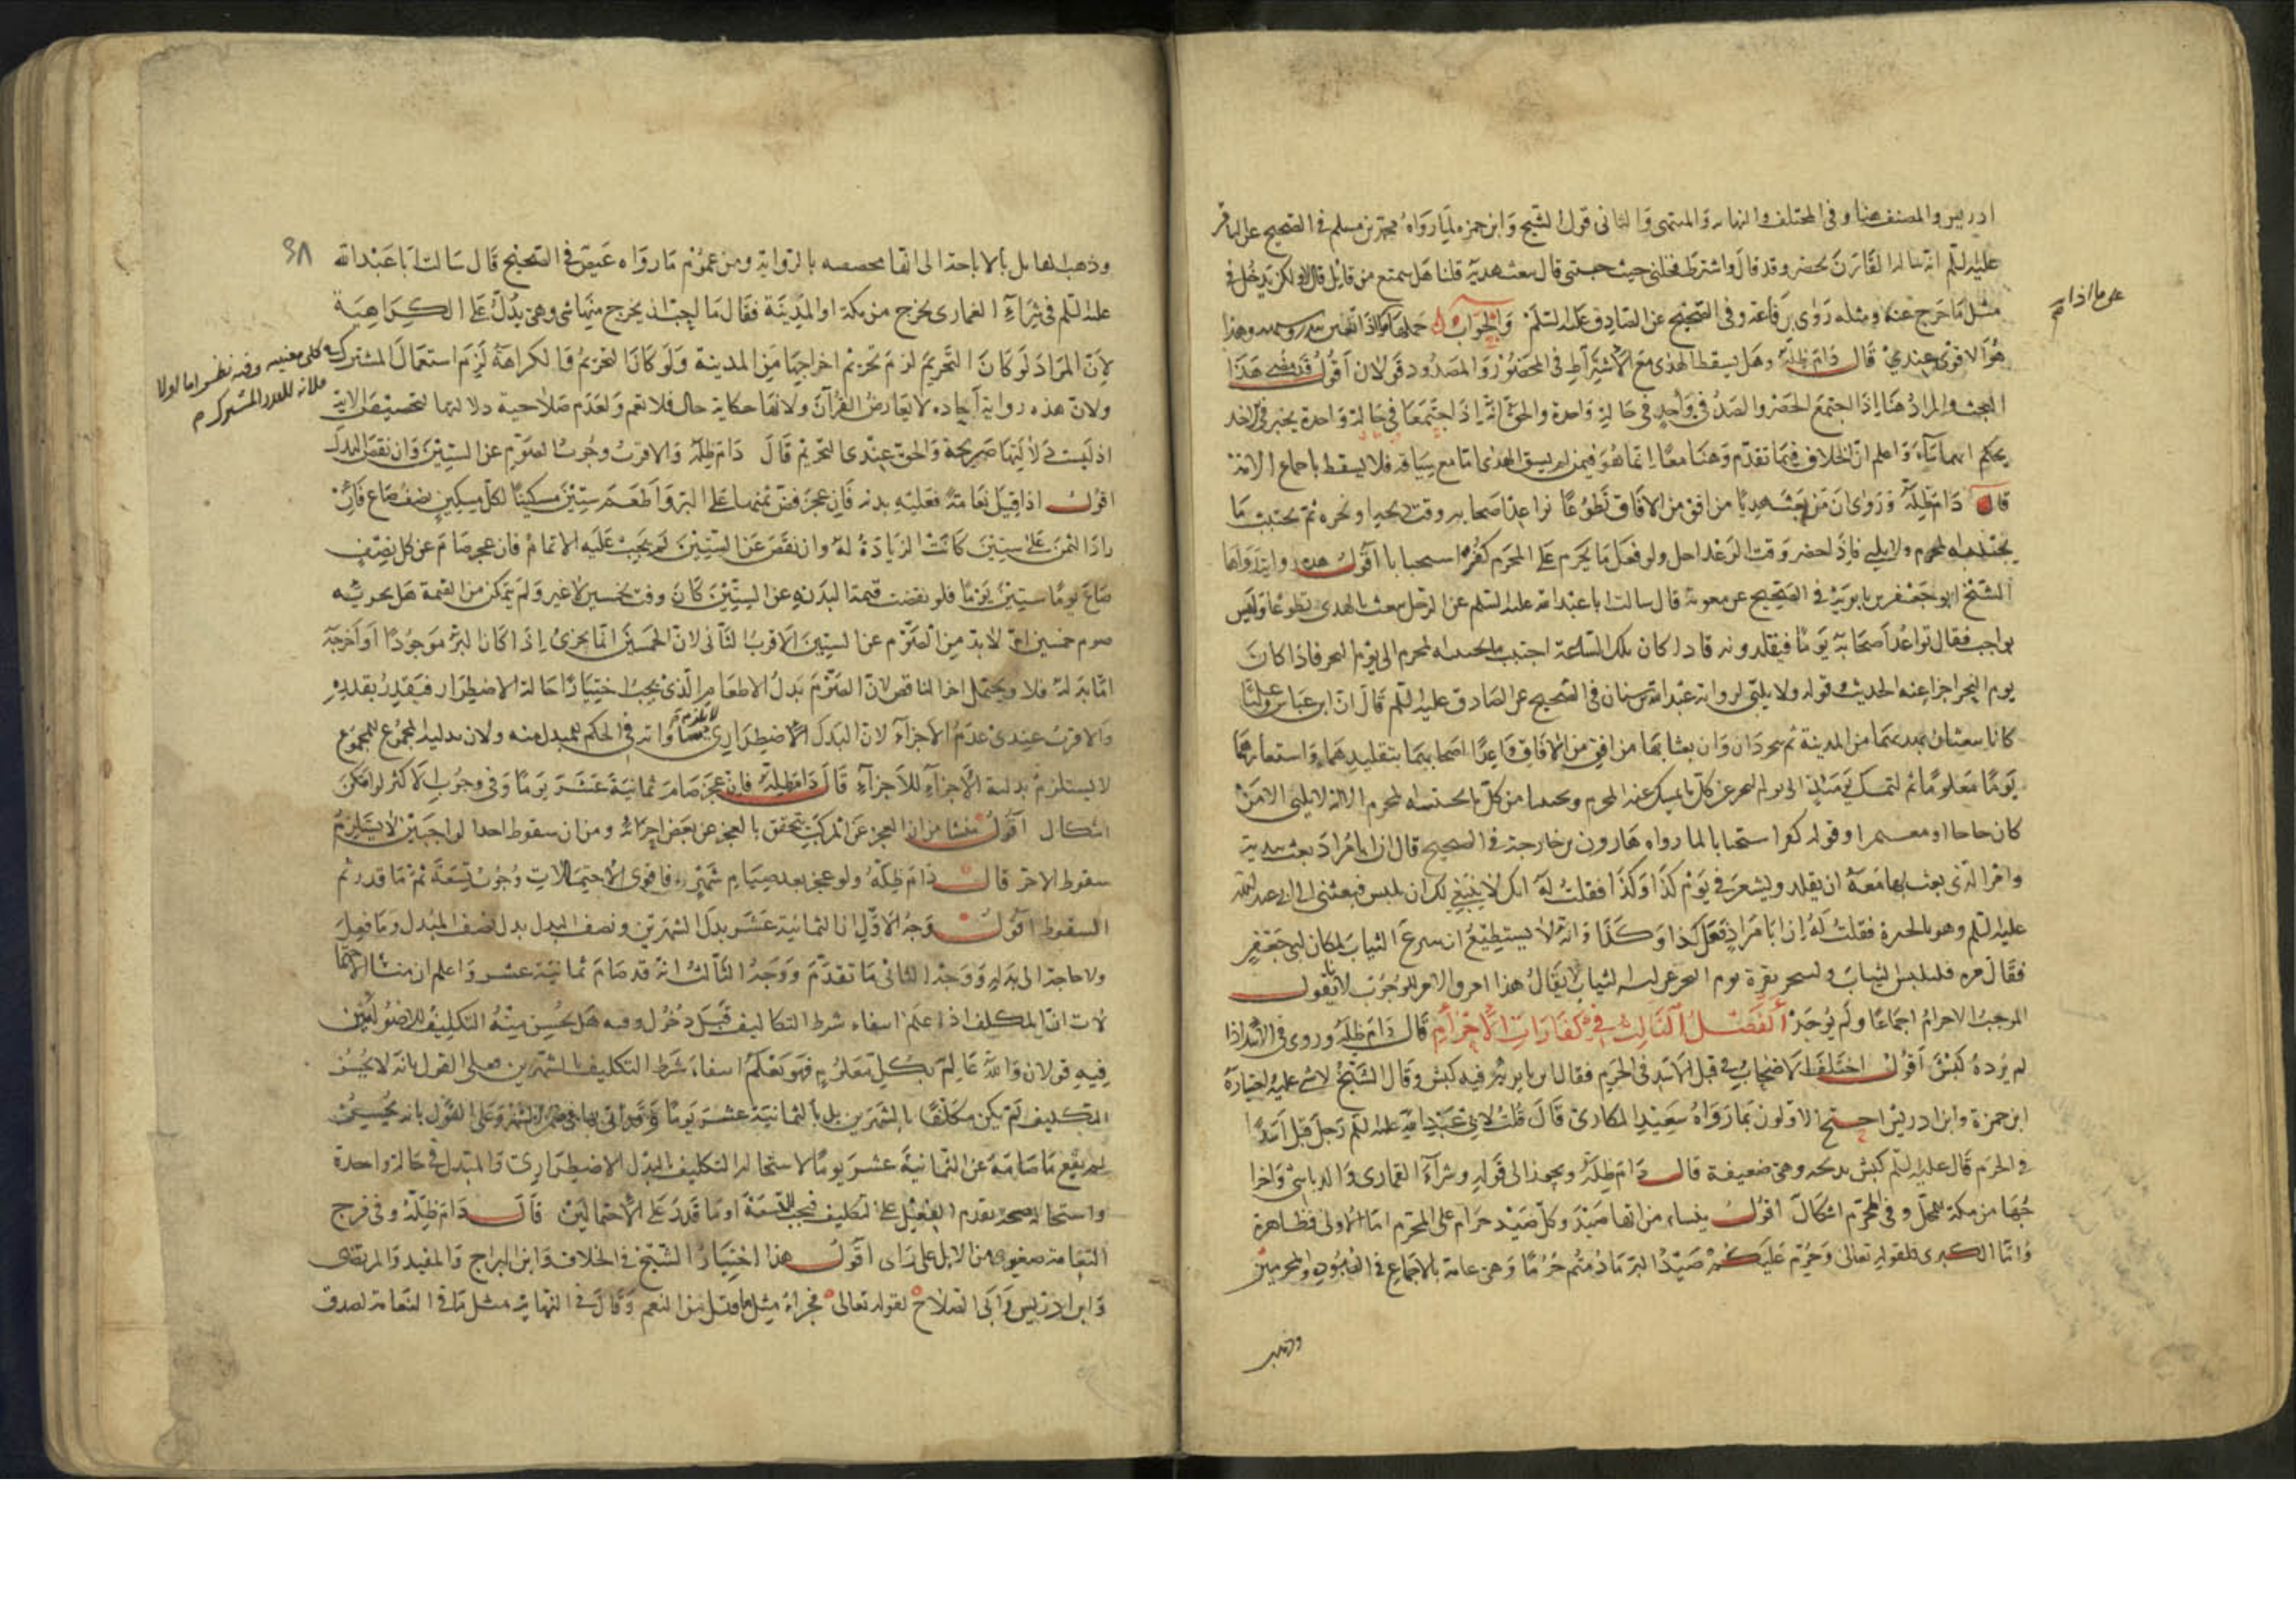 ادريس والمصنف هنا وفى المختلف والنهايه والمنتهى والثانى قول الشيخ وابن حمزه لما رواه محمد بن مسلم فى الصحيح عن الباقر
عليه السلم انه سا له القارن يحضر وقد قال واشترط فحلنى حيث حبستنى قال يبعث بهديه قلنا هل يتمتع من قابل قال لا ولكن يدخل فى
مثل ما خرج عنه ومثله روى رفاعه وفى الصحيح عن الصادق عليه السلم والجواب
هو الاقوى عندى قال دام ظله وهل يسقط الهدى مع الاشتراط فى المحصور والمصدود قولان اقول قد مضى هذا
البحث والمراد هنا اذا اجتمع الحصر والصد فى واحد فى حالة واحدة والحق انه اذا اجتمعا فى حالة واحدة يخير فى اخذ
حكم ايهما شاء واعلم ان الخلاف فيما تقدم وهنا معا انما هو فيمن لم يسق الهدى اما مع سياقه فلا يسقط باجماع الامة
قال دام ظله وروى ان من بعث هديا من افق من الافاق تطوعا نواعد اصحابه وقت ذبحه او نحره ثم يجتنب ما
يجتنبه المحرم ولا يلبى فاذا حضر وقت الوعد احل ولو فعل ما يحرم على المحرم كفر استحبابا اقول هذه رواية رواها
الشيخ ابو جعفر بن بابويه فى الصحيح عن معوية قال سالت ابا عبد الله عليه السلم عن الرجل يبعث بالهدى تطوعا وليس
بواجب فقال تواعد اصحابه يوما فيقلدونه فاذا كان تلك الساعة اجتنب ما يجتنبه المحرم الى يوم النحر فاذا كان
يوم النحر اجزا عنه الحديث وقوله ولا يلبى لرواية عبد الله بن سنان فى الصحيح عن الصادق عليه السلم قال ان ابن عباس وعليا
كانا يبعثان بهديهما من المدينة ثم يتجردان وان بعثا بها من افق من الافاق واعدا اصحابهما بتقليدهما واشعارهما
يوما معلوما ثم ليمسك يومئذ الى يوم النحر عن كل ما يمسك عنه المحرم ويجتنبا من كل ما يجتنبه المحرم الا انه لا يلبى الا من
كان حاجا او معتمرا وقوله كفر استحبابا لما رواه هارون بن خارجة فى الصحيح قال ان ابا مراد بعث ببدنة
وامر الذى بعث بها معه ان يقلد ويشعر فى يوم كذا وكذا فقلت له انك لا ينبغى لك ان تلبس فبعثنى الى ابى عبد الله
عليه السلم وهو بالحيرة فقلت له ان ابا مراد فعل كذا وكذا وانه لا يستطيع ان يدع الثياب لمكان ابى جعفر
فقال مره فليلبس الثياب ولينحر بقرة يوم النحر عن لبسه الثياب لا يقال هذا امر والامر للوجوب لانا نقول
الموجب الاحرام اجماعا ولم يوجد الفصل الثالث فى كفارات الاحرام قال دام ظله وروى فى الاسد اذا
لم يرده كبش اقول اختلف الاصحاب فى قتل الاسد فى الحرم فقال ابن بابويه فيه كبش وقال الشيخ لا شى عليه واختاره
ابن حمزة وابن ادريس احتج الاولون بما رواه سعيد المكارى قال قلت لابى عبد الله عليه السلم رجل قتل اسدا
فى الحرم قال عليه السلم كبش يذبحه وهى ضعيفة قال دام ظله ويجوز الى قوله وشراء القمارى والدباسى واخرا
جها من مكة للمحل وفى المحرم اشكال اقول ينشاء من انها صيد وكل صيد حرام على المحرم اما الاولى فظاهرة
واما الكبرى فلقوله تعالى وحرم عليكم صيد البر ما دمتم حرما وهى عامة بالاجماع فى الصيود والمحرمين
وذهب
٩٨
وذهب القايل بالاباحة الى انها مخصصه بالرواية ومن عموم ما رواه عيص فى الصحيح قال سالت ابا عبد الله
عليه السلم فى شراء القمارى يخرج من مكة او المدينة فقال ما احب ان يخرج منهما شى وهى يدل على الكراهية
لان المراد لو كان التحريم لزم تحريم اخراجها من المدينة ولو كانا التحريم والكراهة لزم استعمال المشترك
ولان هذه رواية آحاد لا يعارض القرآن ولانها حكاية حال فلا تعم ولعدم صلاحية دلالتها لتخصيص الاية
اذ ليست دلالتها صريحة والحق عندى التحريم قال دام ظله والاقرب وجوب الصوم عن الستين وان نقص البدل
اقول اذا قتل نعامة فعليه بدنه فان عجز فض ثمنها على البر واطعم ستين مسكينا لكل مسكين نصف صاع فان
زاد الثمن على ستين كانت الزيادة له وان نقص عن الستين لم يجب عليه الاتمام فان عجز صام عن كل نصف
صاع يوما ستين يوما فلو نقصت قيمة البدنه عن الستين كان وفت بخمسين لا غير ولم يتمكن من القيمة هل يجزيه
صوم خمسين او لا بد من الصوم عن الستين الاقرب الثانى لان الخمسين انما يجزى اذا كانا البر موجودا او اخرجه
اما بدله فلا ويحتمل اجزا الناقص لان الصوم بدل الاطعام الذى يجب اختيارا حالة الاضطرار فيقدر بقدره
والاقرب عندى عدم الاجزاء لان البدل الاضطرارى لا يلزم مساواته فى الحكم للمبدل منه ولان بدلية المجموع للمجموع
لا يستلزم بدلية الاجزاء للاجزاء قال دام ظله فان عجز صام ثمانية عشر يوما وفى وجوب الاكثر لو امكن
اشكال اقول منشا من ان العجز عن المركب يتحقق بالعجز عن بعض اجزائه ومن ان سقوط احد الواجبين لا يستلزم
سقوط الاخر قال دام ظله ولو عجز بعد صيام شهر فاقوى الاحتمالات وجوب تسعة ثم ما قدر ثم
السقوط اقول وجه الاول ان الثمانية عشر بدل الشهرين ونصف البدل بدل نصف المبدل وما فعل
ولا حاجة الى بدله ووجه الثانى ما تقدم ووجه الثالث انه قد صام ثمانية عشر واعلم ان منشا الاحتما
لات ان المكلف اذا علم انتفاء شرط التكاليف قبل دخول وقته هل يحسن منه التكليف للاصوليين
فيه قولان والله عالم بكل معلوم فهو يعلم انتفاء شرط التكليف بالشهرين فعلى القول بانه لا يحسن
التكليف لم يكن مكلفا بالشهرين بل بالثمانية عشر يوما وقد اتى بها فى ضمن الشهر وعلى القول بانه يحسن
لم يقع ما صامه عن الثمانية عشر يوما لاستحالة التكليف بالبدل الاضطرارى والمبدل فى حالة واحدة
واستحالة صحة تقدم الفعل على التكليف فيجب التسعة او ما قدر على الاحتمالين قال دام ظله وفى فرخ
النعامة صغير من الابل على راى اقول هذا اختيار الشيخ فى الخلاف وابن البراج والمفيد والمرتضى
وابن ادريس وابى الصلاح لقوله تعالى فجزاء مثل ما قتل من النعم وقال فى النهاية مثل ما فى النعامة لصدق